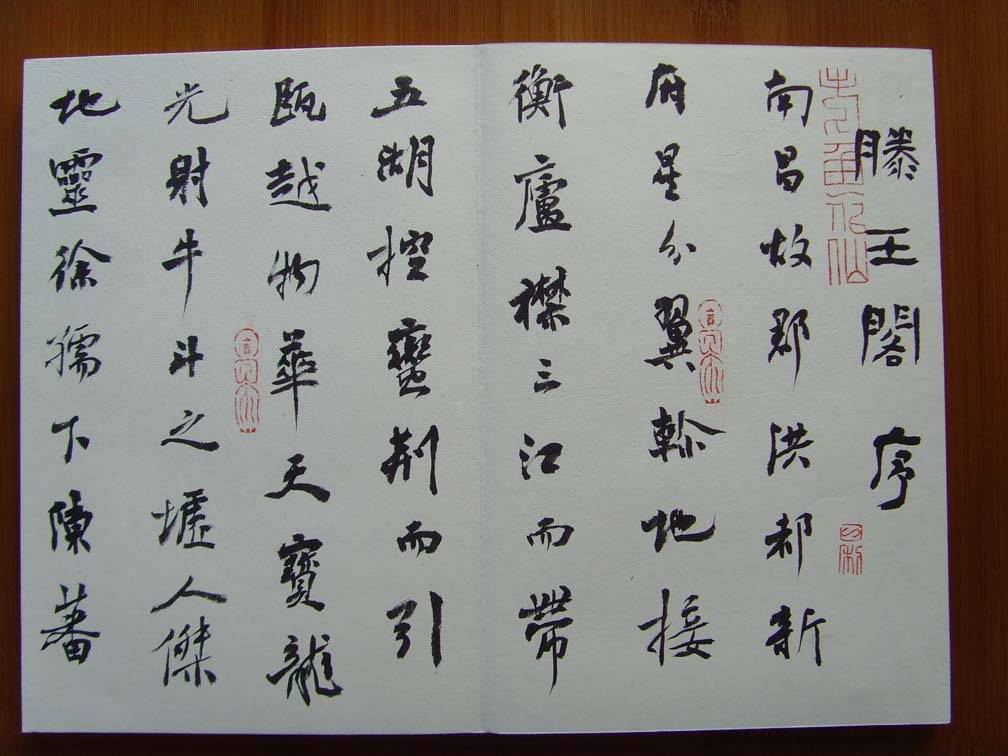 滕王阁序
南昌故郡洪都新
府星分翼轸地接
衡廬襟三江而帶
五湖控蠻荆而引
瓯越物華天寶龍
光射牛斗之墟人傑
地靈徐孺下陳蕃